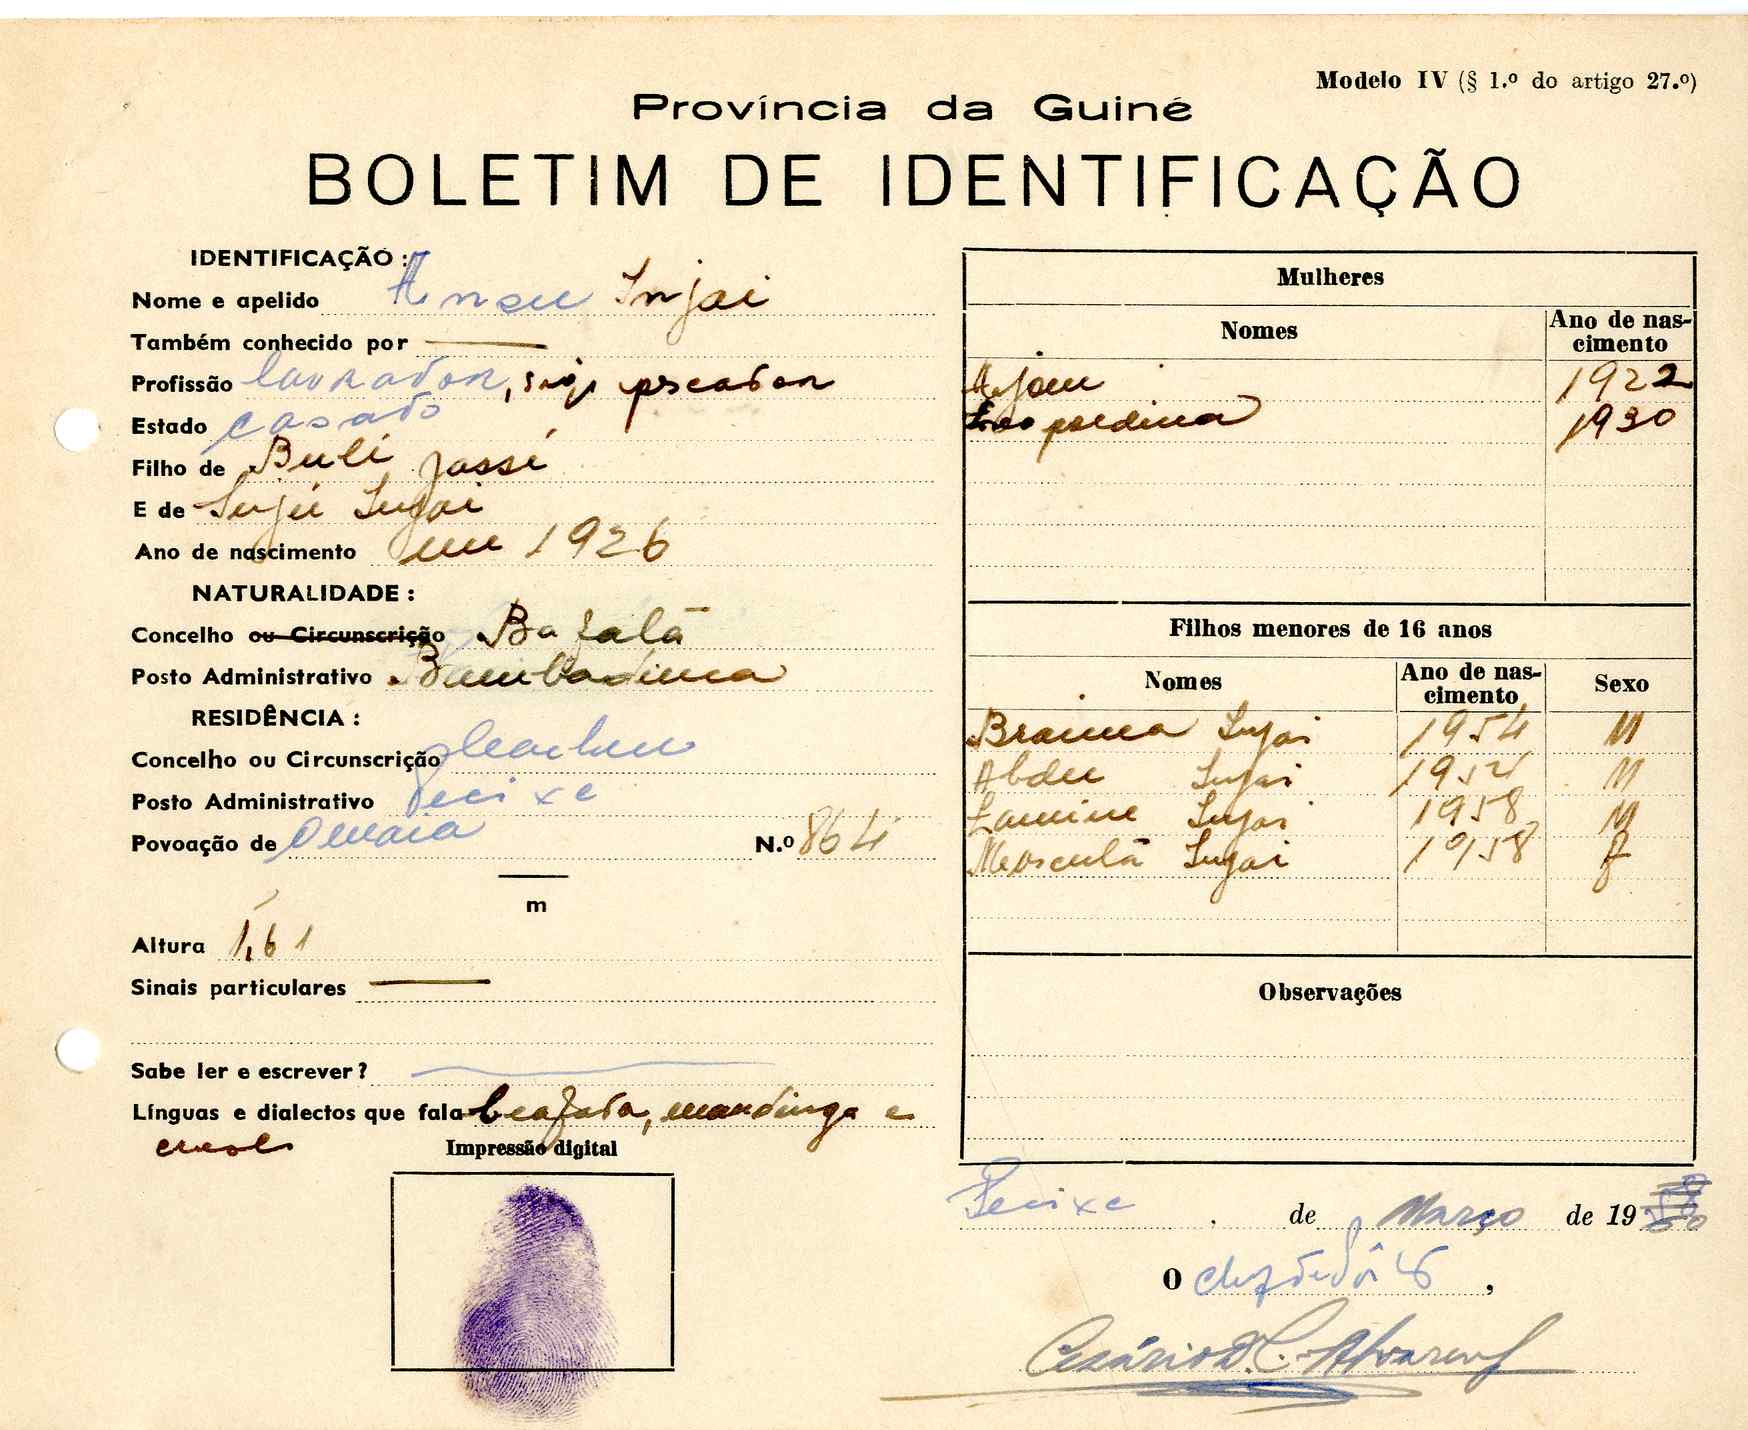 Modelo IV (§ 1.º do artigo 27.º)
Província da Guiné
BOLETIM DE IDENTIFICAÇÃO
IDENTIFICAÇÃO :
Nome e apelido Ansu Injai
Também conhecido por —
Profissão lavrador, pscador
Estado casado
Filho de Buli Jassi
E de Injai
Ano de nascimento em 1926
NATURALIDADE :
Concelho ou Circunscrição Bafatá
Posto Administrativo Bambadinca
RESIDÊNCIA :
Concelho ou Circunscrição
Posto Administrativo Pecixe
Povoação de N.º 864
m
Altura 1,61
Sinais particulares —
Sabe ler e escrever?
Línguas e dialectos que fala beafada, mandinga e
Impressão digital
Mulheres
Nomes Ano de nas-
cimento
1922
1930
Filhos menores de 16 anos
Nomes Ano de nas-
cimento Sexo
Braima Injai 1954 M
Abdu Injai 1954 M
Lamine Injai 1958 M
Injai 1958 F
Observações
Pecixe de Março de 19
O